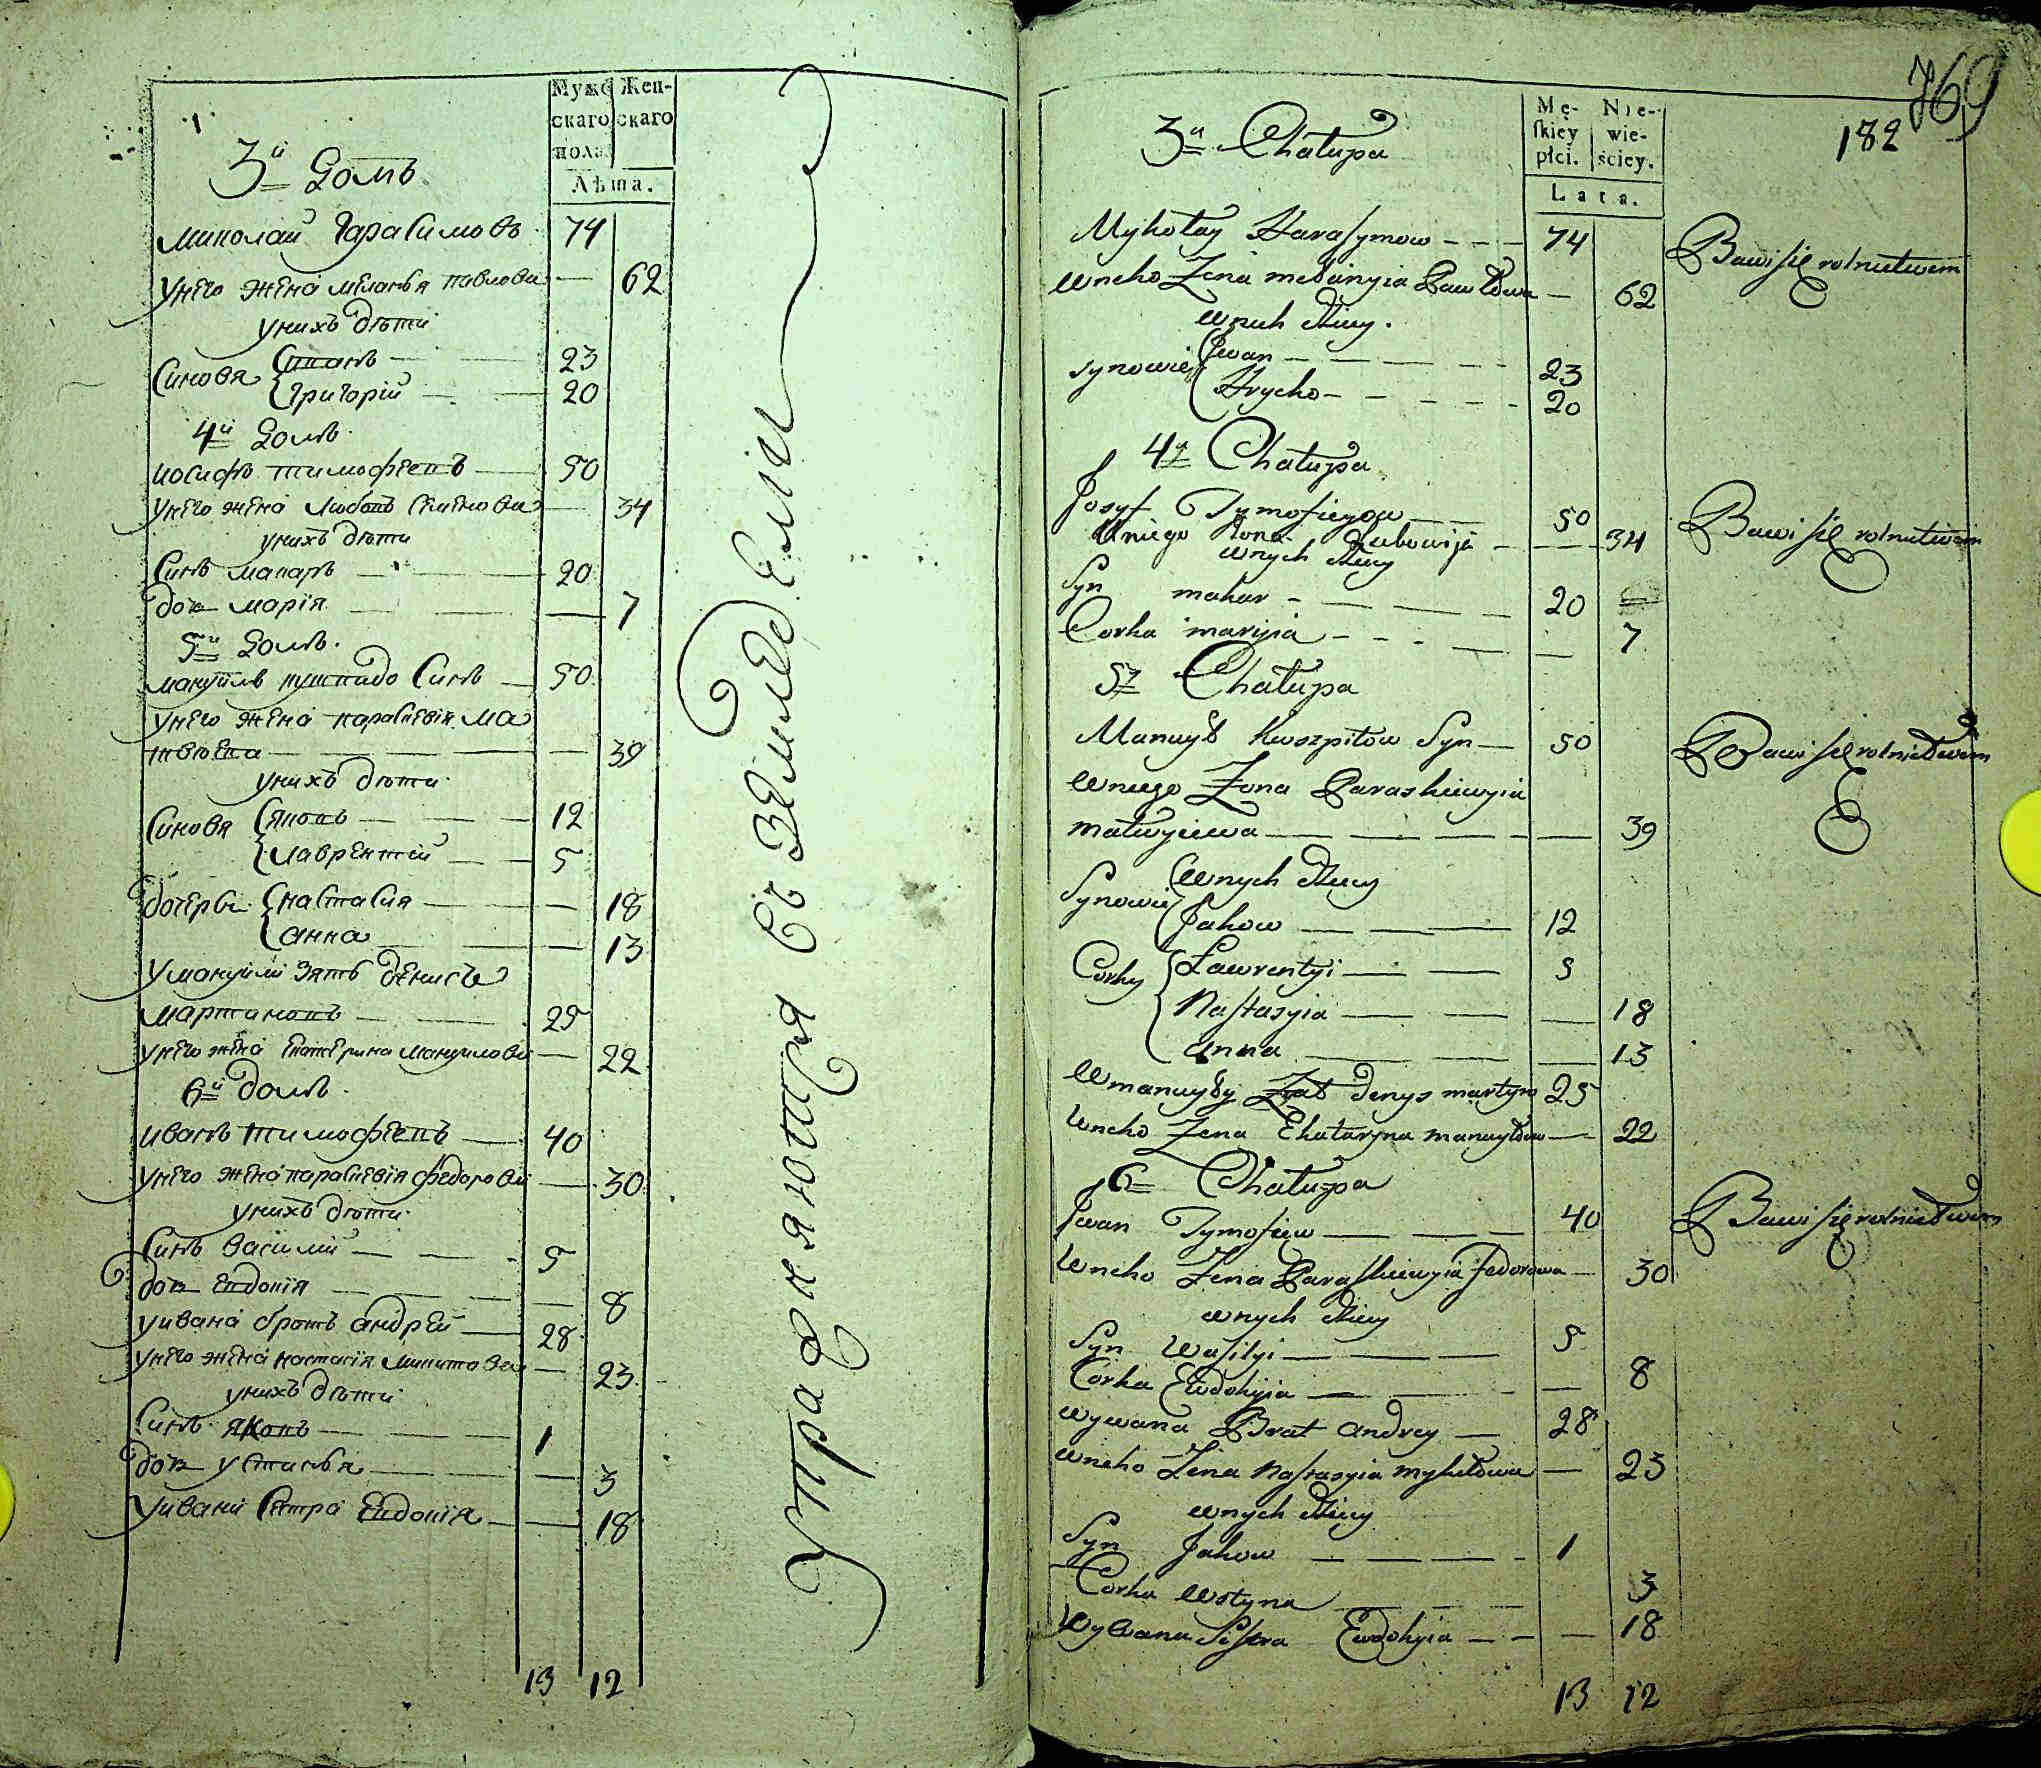 Муже Жен-
скаго скаго
пола
Лѣта.
3й Домъ
Миколай Гарасимовъ 74
У него жена меланья павлова — 62
У нихъ дѣти
Синовя Иванъ — 23
Григорій — 20
4й Домъ
Иосифъ тимофеевъ — 50
У него жена Любовъ — 34
У нихъ дѣти
Синъ макаръ — 20
доч марія — 7
5й Домъ
мануилъ Синъ — 50
У него жена параскевія ма
твѣева — 39
У нихъ дѣти
Синовя яковъ — 12
лаврентій — 5
дочерѣ настасия — 18
анна — 13
У мануйли зять денисъ
мартиновъ — 25
У него жена Екатерина мануилова — 22
6й домъ
иванъ тимофеевъ — 40
У него жена параскевія федорова — 30
У нихъ дѣти
Синъ василий — 5
доч Евдокія — 8
У ивана братъ андрей — 28
У него жена настасія микитова — 23
У нихъ дѣти
Синъ яковъ — 1
доч устинья — 3
У ивана сестра Евдокія — 18
13 12
Упражняются въ земледелии
769
182
Mę- Nie-
skiey wie-
płci. ściey.
Lata.
3a Chałupa
Mykołay Harasymow - - - 74 Bawi się rolnictwem
W neho Żena mełanyia Pawłowa — 62
W nich dzieci.
Synowie Jwan — 23
Hrycho — 20
4a Chałupa
Josyf Tymofieyow 50 Bawi się rolnictwem
U niego Żona Lubowija — 34
W nych dzieci
Syn makar — 20
Corka maryia — 7
5a Chałupa
Manuył Syn — 50 Bawi się rolnictwem
W niego Żona Paraskiewyia
matwyiewa — 39
W nych dzieci
Synowie Jakow — 12
Corky Ławrentyi — 5
Nastasyia — 18
anna — 13
W manuyły Zat denys martyno 25
W neho Żena Ekataryna manuyłowa — 22
6 Chałupa
Jwan Tymofiiw — 40 Bawi się rolnictwem
W neho Żena Paraskiewyia fedorowa — 30
W nych dzieci
Syn Wasilyi — 5
Corka Ewdokyia — 8
W ywana Brat andrey — 28
W neho Żena Nastasyia mykitowa — 23
W nych dzieci
Syn Jakow — 1
Corka Wstyna 3
W ywana Sistra Ewdokyia — 18
13 12